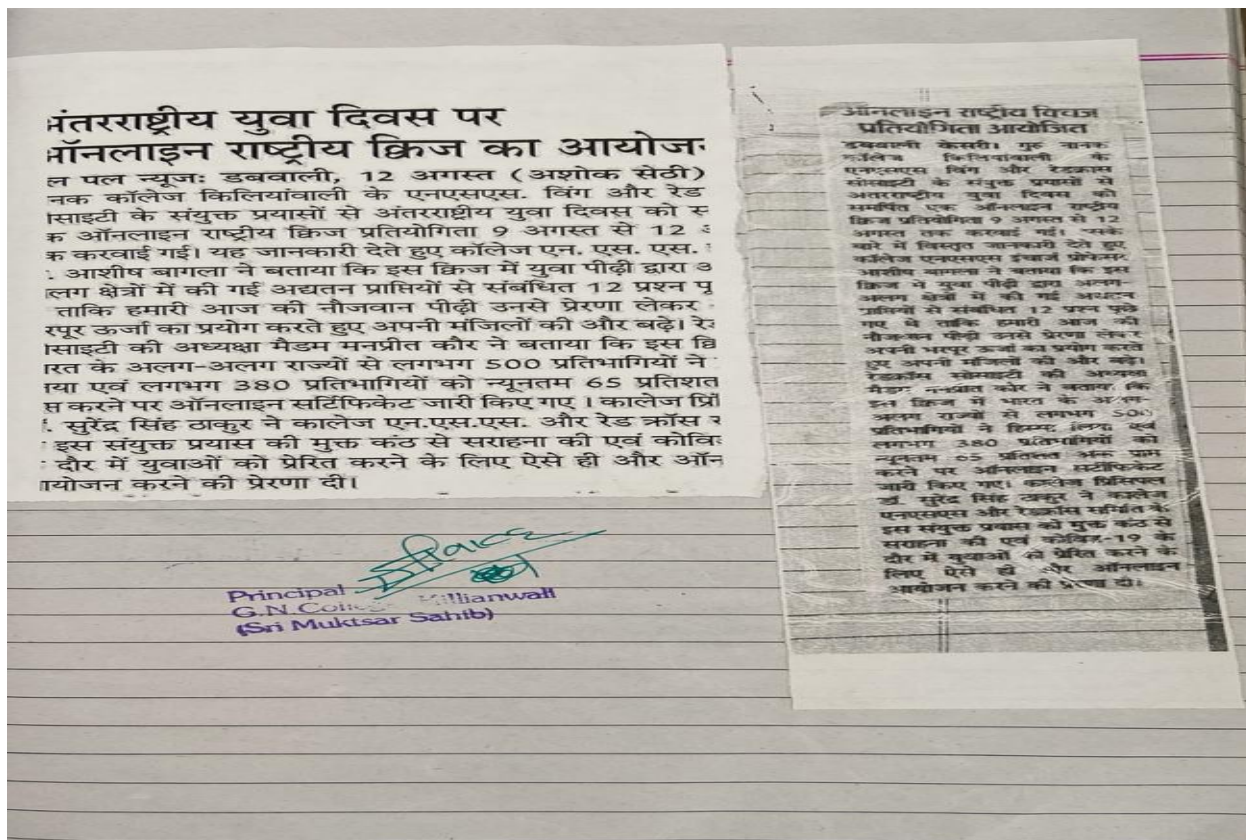 अंतरराष्ट्रीय युवा दिवस पर
ऑनलाइन राष्ट्रीय क्विज का आयोज
ल पल न्यूजः डबवाली, 12 अगस्त (अशोक सेठी)
नक कॉलेज किलियांवाली के एनएसएस. विंग और रेड
साइटी के संयुक्त प्रयासों से अंतरराष्ट्रीय युवा दिवस को स
क ऑनलाइन राष्ट्रीय क्विज प्रतियोगिता 9 अगस्त से 12 अ
क करवाई गई। यह जानकारी देते हुए कॉलेज एन. एस. एस.
. आशीष बागला ने बताया कि इस क्विज में युवा पीढ़ी द्वारा अ
लग क्षेत्रों में की गई अद्यतन प्राप्तियों से संबंधित 12 प्रश्न पू
ताकि हमारी आज की नौजवान पीढ़ी उनसे प्रेरणा लेकर
रपूर ऊर्जा का प्रयोग करते हुए अपनी मंजिलों की और बढ़े। रे
साइटी की अध्यक्षा मैडम मनप्रीत कौर ने बताया कि इस क्वि
रत के अलग-अलग राज्यों से लगभग 500 प्रतिभागियों ने
या एवं लगभग 380 प्रतिभागियों को न्यूनतम 65 प्रतिशत
प्त करने पर ऑनलाइन सर्टिफिकेट जारी किए गए । कालेज प्रिं
. सुरेंद्र सिंह ठाकुर ने कालेज एन.एस.एस. और रेड क्रॉस स
इस संयुक्त प्रयास की मुक्त कंठ से सराहना की एवं कोवि
दौर में युवाओं को प्रेरित करने के लिए ऐसे ही और ऑन
ायोजन करने की प्रेरणा दी।
ऑनलाइन राष्ट्रीय क्विज
प्रतियोगिता आयोजित
डबवाली केसरी। गुरु नानक
कॉलेज किलियांवाली के
एनएसएस विंग और रेडक्रास
सोसाइटी के संयुक्त प्रयासों से
अंतरराष्ट्रीय युवा दिवस को
समर्पित एक ऑनलाइन राष्ट्रीय
क्विज प्रतियोगिता 9 अगस्त से 12
अगस्त तक करवाई गई। इसके
बारे में विस्तृत जानकारी देते हुए
कॉलेज एनएसएस इंचार्ज प्रोफेसर
आशीष बागला ने बताया कि इस
क्विज में युवा पीढ़ी द्वारा अलग-
अलग क्षेत्रों में की गई अद्यतन
प्राप्तियों से संबंधित 12 प्रश्न पूछे
गए थे ताकि हमारी आज की
नौजवान पीढ़ी उनसे प्रेरणा लेकर
अपनी भरपूर ऊर्जा का प्रयोग करते
हुए अपनी मंजिलों की और बढ़े।
रेडक्रॉस सोसाइटी की अध्यक्षा
मैडम मनप्रीत कौर ने बताया कि
इस क्विज में भारत के अलग-
अलग राज्यों से लगभग 500
प्रतिभागियों ने हिस्सा लिया एवं
लगभग 380 प्रतिभागियों को
न्यूनतम 65 प्रतिशत अंक प्राप्त
करने पर ऑनलाइन सर्टीफिकेट
जारी किए गए। कालेज प्रिंसिपल
डॉ सुरेंद्र सिंह ठाकुर ने कालेज
एनएसएस और रेडक्रॉस समिति के
इस संयुक्त प्रयास को मुक्त कंठ से
सराहना की एवं कोविड-19 के
दौर में युवाओं को प्रेरित करने के
लिए ऐसे ही और ऑनलाइन
आयोजन करने की प्रेरणा दी।
Principal
G.N. Killianwali
(Sri Muktsar Sahib)